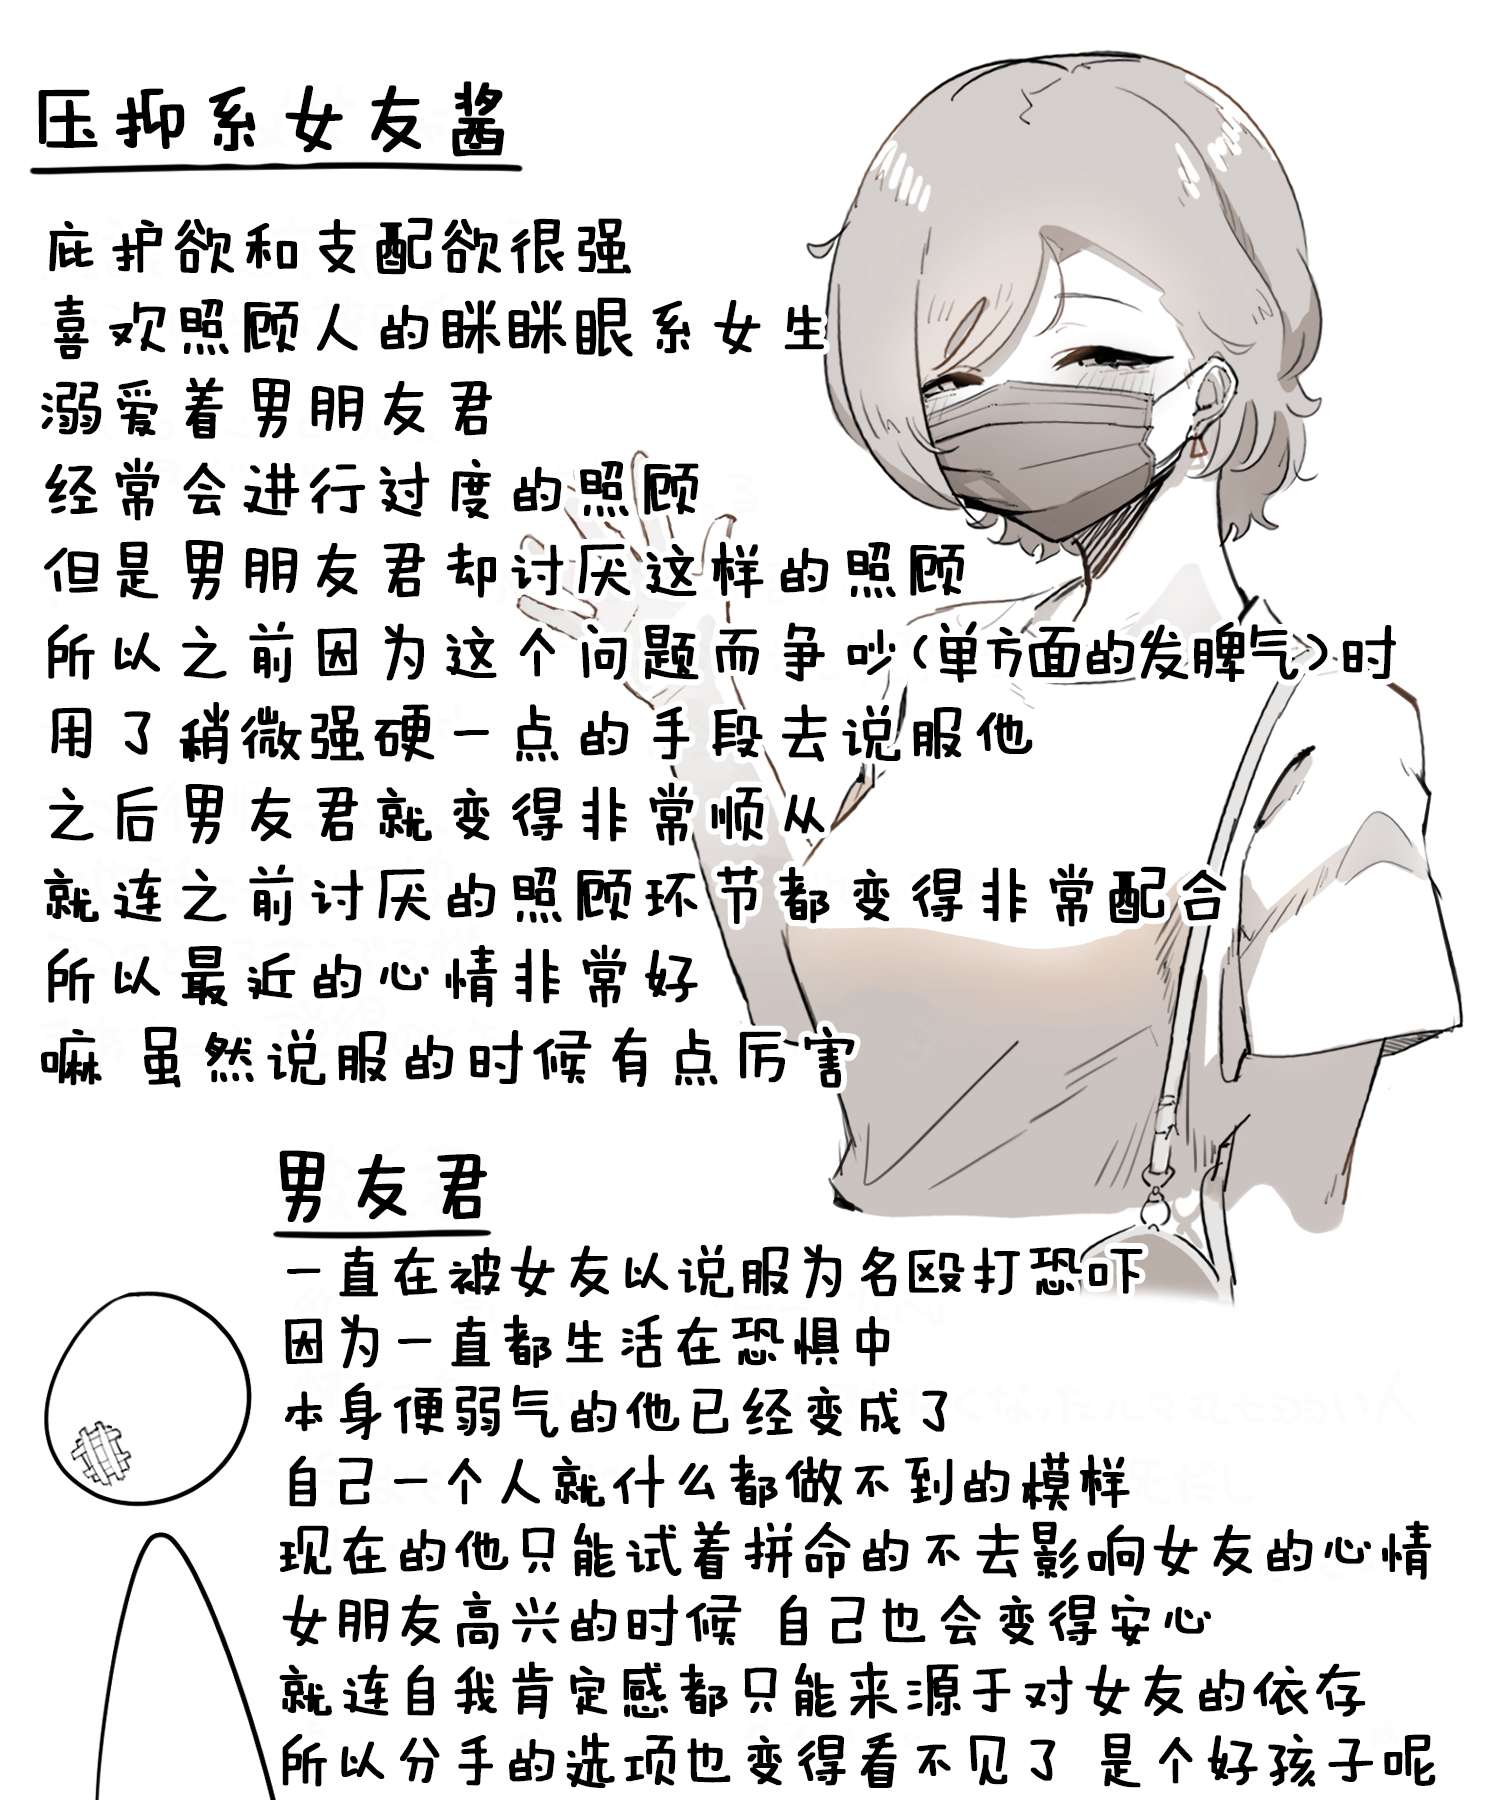 压抑系女友酱
庇护欲和支配欲很强
喜欢照顾人的眯眯眼系女生
溺爱着男朋友君
经常会进行过度的照顾
但是男朋友君却讨厌这样的照顾
所以之前因为这个问题而争吵(单方面的发脾气)时
用了稍微强硬一点的手段去说服他
之后男友君就变得非常顺从
就连之前讨厌的照顾环节都变得非常配合
所以最近的心情非常好
嘛 虽然说服的时候有点厉害
男友君
一直在被女友以说服为名殴打恐吓
因为一直都生活在恐惧中
本身便弱气的他已经变成了
自己一个人就什么都做不到的模样
现在的他只能试着拼命的不去影响女友的心情
女朋友高兴的时候 自己也会变得安心
就连自我肯定感都只能来源于对女友的依存
所以分手的选项也变得看不见了 是个好孩子呢